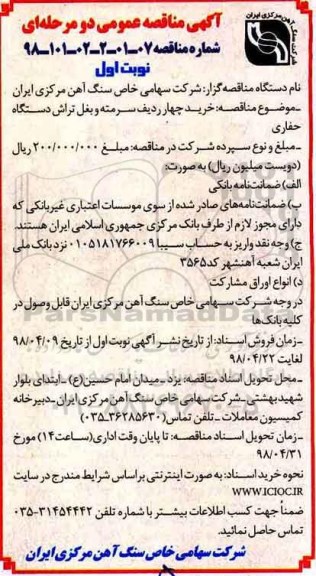 آگهی مناقصه عمومی دو مرحله‌ای
شماره مناقصه ۰۷-۰۱-۰۲-۰۲-۱۰۱-۹۸
نوبت اول
شرکت سنگ آهن مرکزی ایران
نام دستگاه مناقصه گزار: شرکت سهامی خاص سنگ آهن مرکزی ایران
-موضوع مناقصه: خرید چهار ردیف سرمته و بغل تراش دستگاه
حفاری
-مبلغ و نوع سپرده شرکت در مناقصه: مبلغ ۲۰۰/۰۰۰/۰۰۰ ریال
(دویست میلیون ریال) به صورت:
الف) ضمانت‌نامه بانکی
ب) ضمانت‌نامه‌های صادر شده از سوی موسسات اعتباری غیربانکی که
دارای مجوز لازم از طرف بانک مرکزی جمهوری اسلامی ایران هستند.
ج) وجه نقد واریز به حساب سیبا ۰۱۰۵۱۸۱۷۶۶۰۰۹ نزد بانک ملی
ایران شعبه آهنشهر کد ۳۵۶۵
د) انواع اوراق مشارکت
در وجه شرکت سهامی خاص سنگ آهن مرکزی ایران قابل وصول در
کلیه بانک‌ها
-زمان فروش اسناد: از تاریخ نشر آگهی نوبت اول از تاریخ ۹۸/۰۴/۰۹
لغایت ۹۸/۰۴/۲۲
-محل تحویل اسناد مناقصه: یزد - میدان امام حسین (ع) - ابتدای بلوار
شهید بهشتی - شرکت سهامی خاص سنگ آهن مرکزی ایران - دبیرخانه
کمیسیون معاملات - تلفن تماس (۳۶۲۸۵۶۳۰-۰۳۵)
-زمان تحویل اسناد مناقصه: تا پایان وقت اداری (ساعت ۱۴) مورخ
۹۸/۰۴/۳۱
نحوه خرید اسناد: به صورت اینترنتی براساس شرایط مندرج در سایت
WWW.ICIOC.IR
ضمناً جهت کسب اطلاعات بیشتر با شماره تلفن ۳۱۴۵۴۴۴۲-۰۳۵
تماس حاصل نمائید.
شرکت سهامی خاص سنگ آهن مرکزی ایران